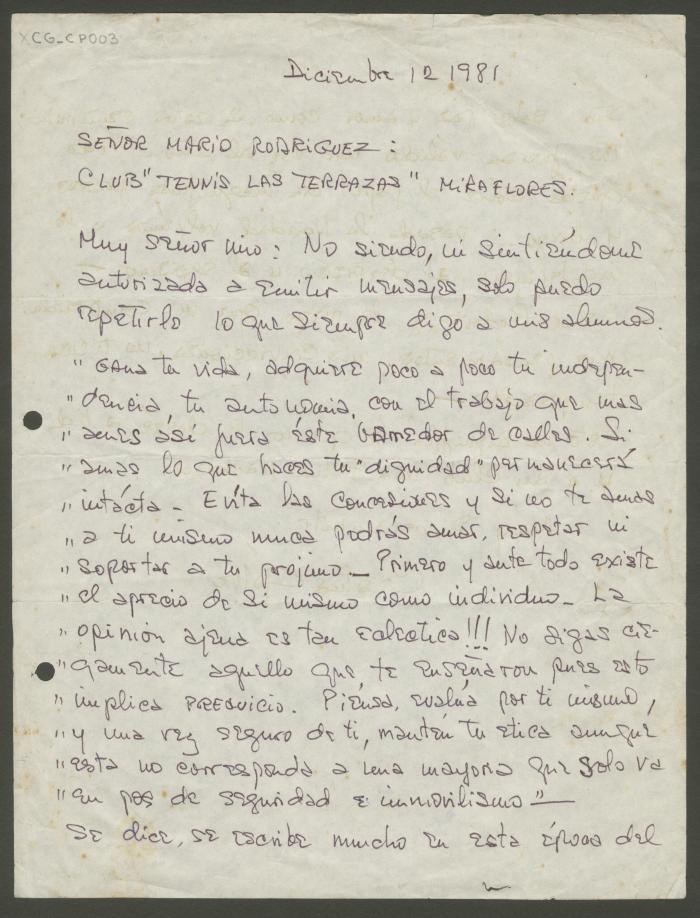 XCG_CP003
Diciembre 12 1981
SEÑOR MARIO RODRIGUEZ:
CLUB "TENNIS LAS TERRAZAS" MIRAFLORES.
Muy señor mío: No siendo, ni sintiéndome
autorizada a emitir mensajes, solo puedo
repetirle lo que siempre digo a mis alumnos.
"Gana tu vida, adquiere poco a poco tu indepen-
"dencia, tu autonomia, con el trabajo que mas
"ames así fuera éste barredor de calles. Si
"amas lo que haces tu "dignidad" permanecerá
"intácta - Evita las concesiones y si no te amas
"a ti mismo nunca podrás amar, respetar ni
"soportar a tu projimo - Primero y ante todo existe
"el aprecio de si mismo como individuo - La
"opinión ajena es tan eclectica!!! No digas cie-
"gamente aquello que te enseñaron pues esto
"implica PREJUICIO. Piensa, evalúa por ti mismo,
"y una vez seguro de ti, mantén tu etica aunque
"esta no corresponda a una mayoria que solo va
"en pos de seguridad e inmovilismo" -
Se dice, se escribe mucho en esta época del